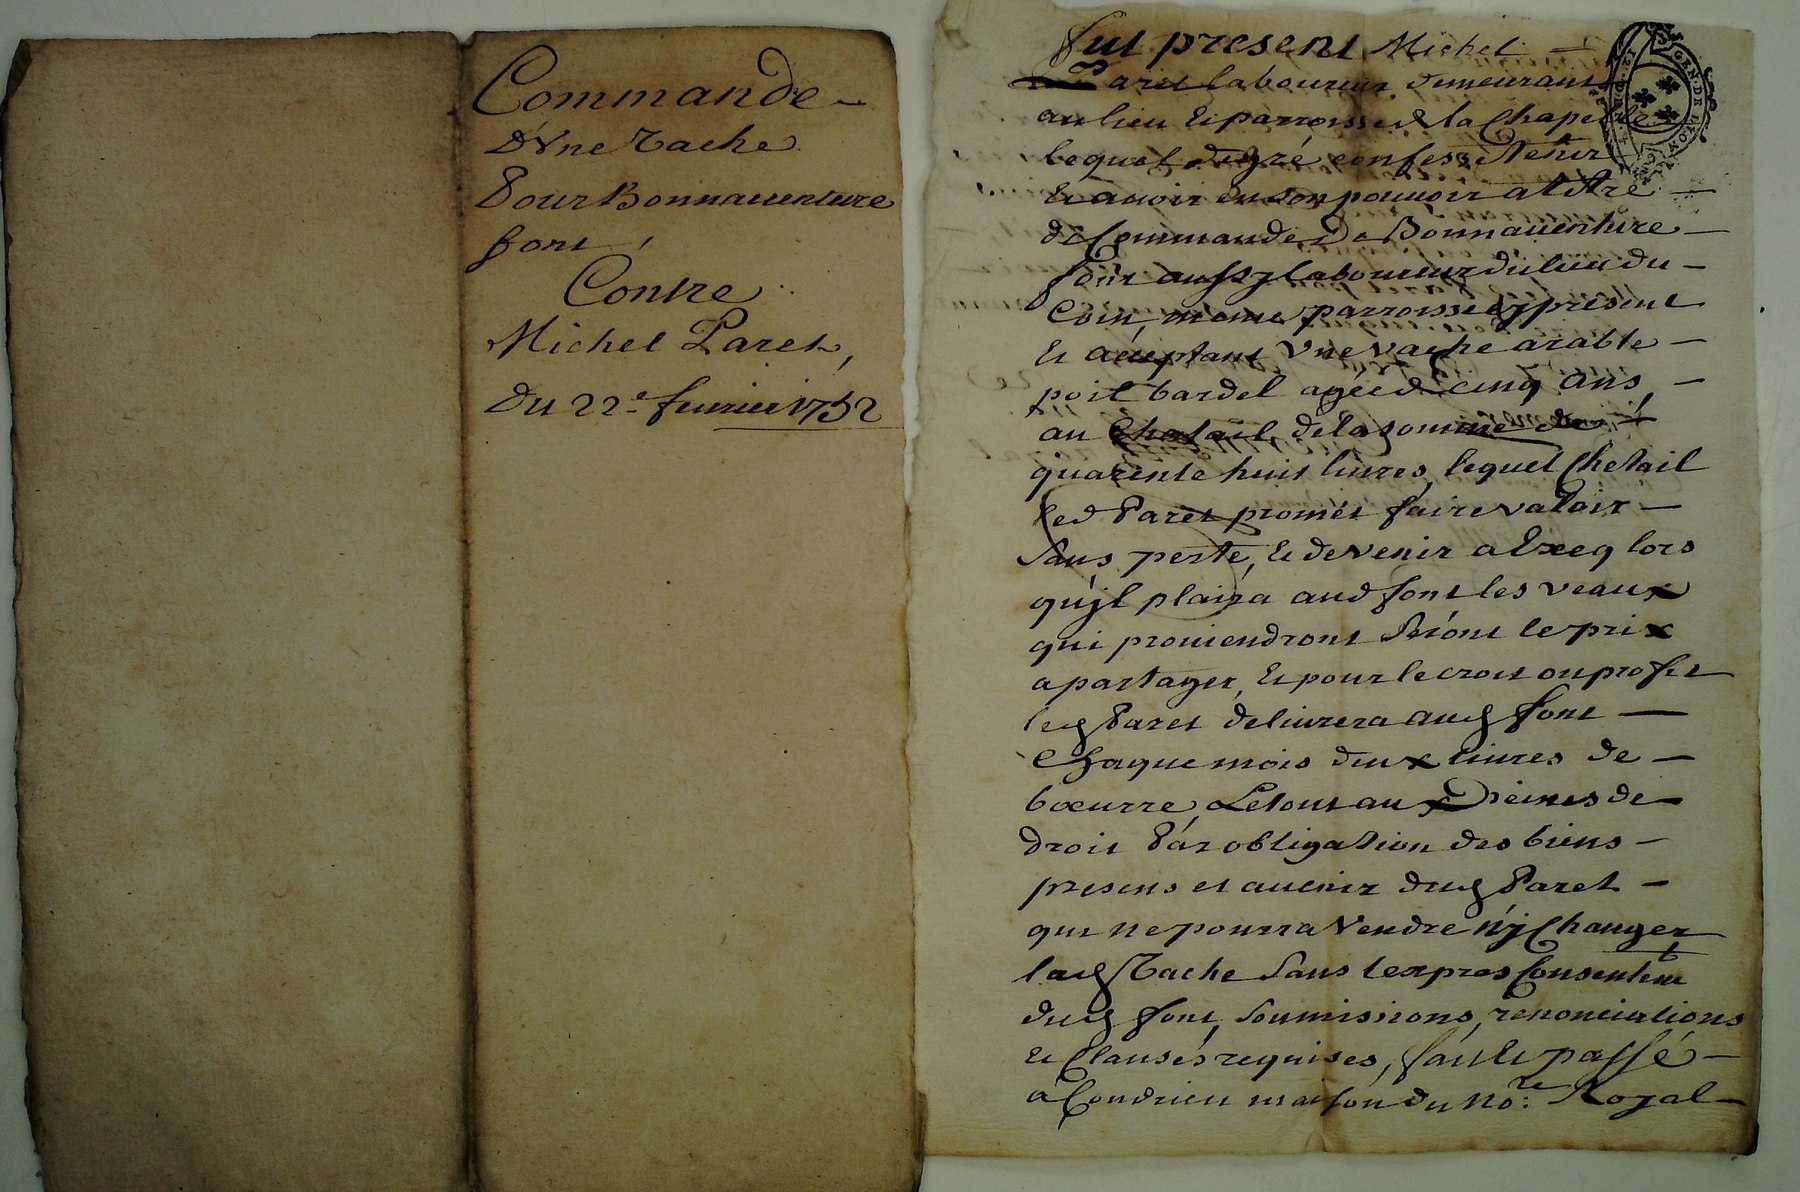 Commande
d'Vne Vache
Pour Bonnauenture
font
Contre
Michel Paret,
du 22e feurier 1752
fut present Michel
Paret laboureur demeurant
au lieu et parroisse de la Chapelle
lequel de gré confesse tenir
et auoir en son pouuoir a titre
de Commande De Bonnauenture
font aussy laboureur du lieu du
Coin, meme parroisse cy present
et acceptant Vne vache arable
poil bardel agée de cinq ans,
au Chetail de la somme de
quarente huit liures, lequel Chetail
led Paret promet faire valoir
sans perte, et de venir a Exeq lors
qu'jl plaira aud font les veaux
qui prouiendront seront le prix
a partager, et pour le croit ou profit
led Paret deliurera aud font
chaque mois deux liures de
boeurre, Le tout aux peines de
droit Par obligation des biens
presens et auenir dud Paret
qui ne pourra Vendre nj Changer
lad Vache sans lexpres Consentemt
dud font, soumissions, renonciations
et Clauses requises, fait et passé
a Condrieu maison du no:re Royal
GEN. DE LYON